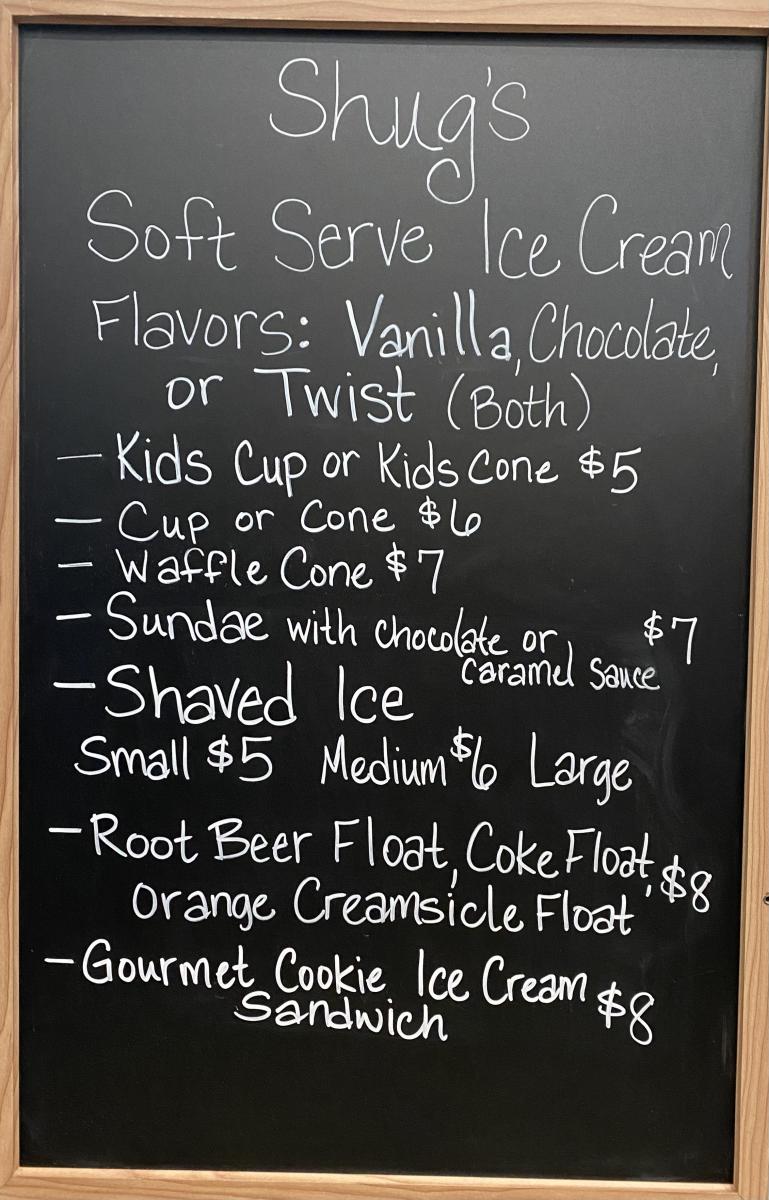 Shug's
Soft Serve Ice Cream
Flavors: Vanilla, Chocolate,
or Twist (Both)
— Kids Cup or Kids Cone $5
— Cup or Cone $6
— Waffle Cone $7
— Sundae with chocolate or $7
caramel Sauce
— Shaved Ice
Small $5 Medium $6 Large
— Root Beer Float, Coke Float, $8
Orange Creamsicle Float
— Gourmet Cookie Ice Cream $8
Sandwich